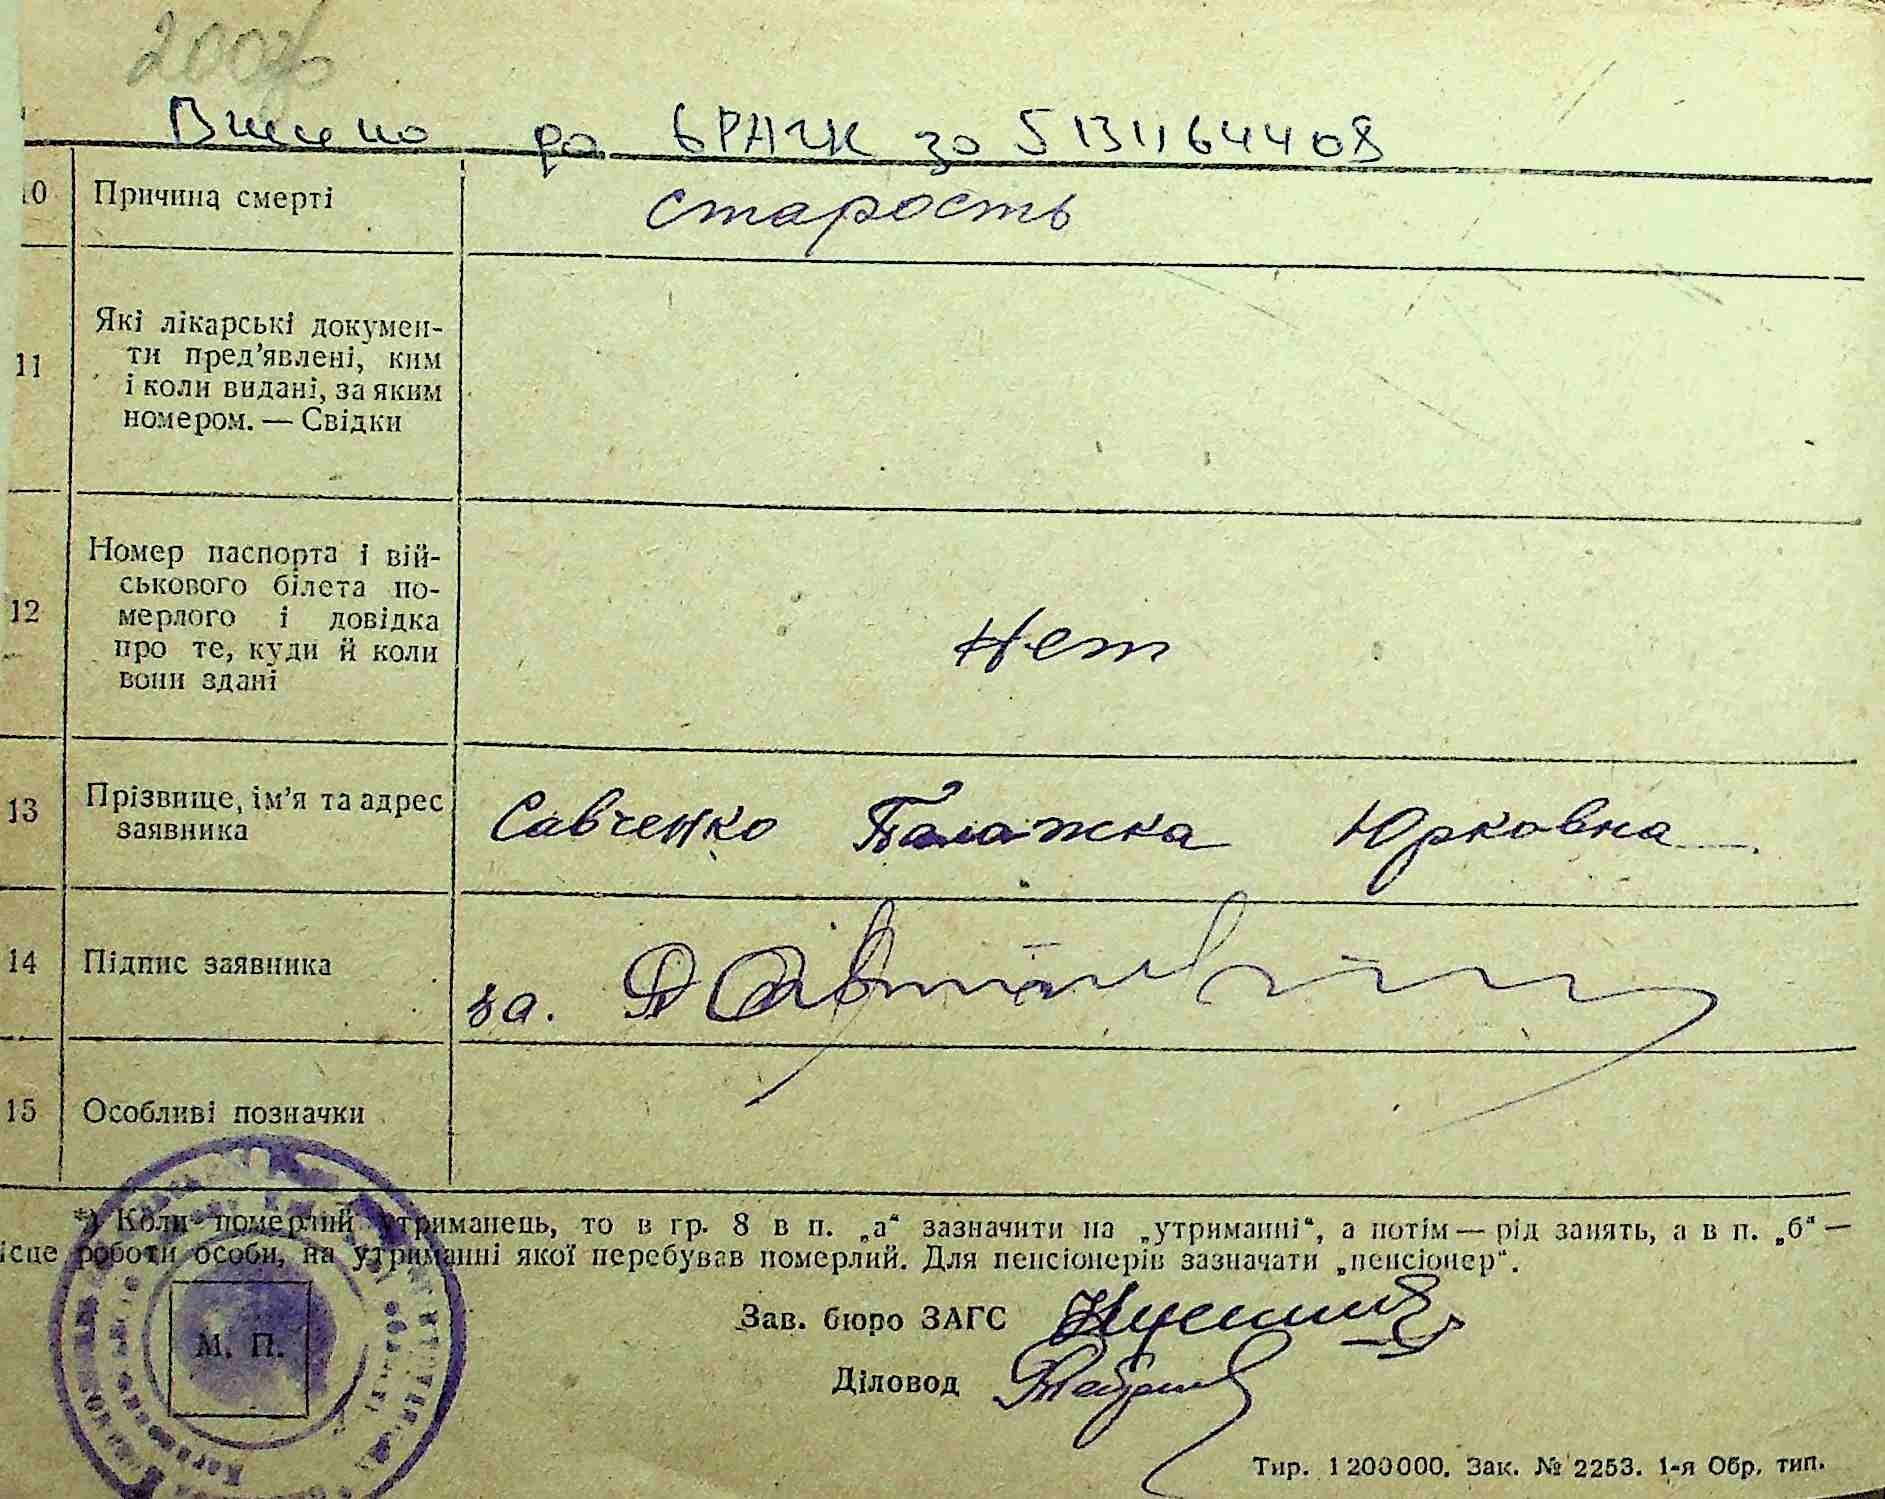 200
Внесено до ДРАЦС за 5131164408
10 Причина смерті старость
11 Які лікарські докумен-
ти пред’явлені, ким
і коли видані, за яким
номером. — Свідки
12 Номер паспорта і вій-
ськового білета по-
мерлого і довідка
про те, куди й коли
вони здані
нет
13 Прізвище, ім’я та адрес
заявника
Савченко Палажка Юрковна
14 Підпис заявника за.
15 Особливі позначки
*) Коли померлий утриманець, то в гр. 8 в п. „а“ зазначити на „утриманні“, а потім — рід занять, а в п. „б“ —
ісце роботи особи, на утриманні якої перебував померлий. Для пенсіонерів зазначати „пенсіонер“.
Зав. бюро ЗАГС
М. П.
Діловод
Тир. 1200000. Зак. № 2253. 1-я Обр. тип.